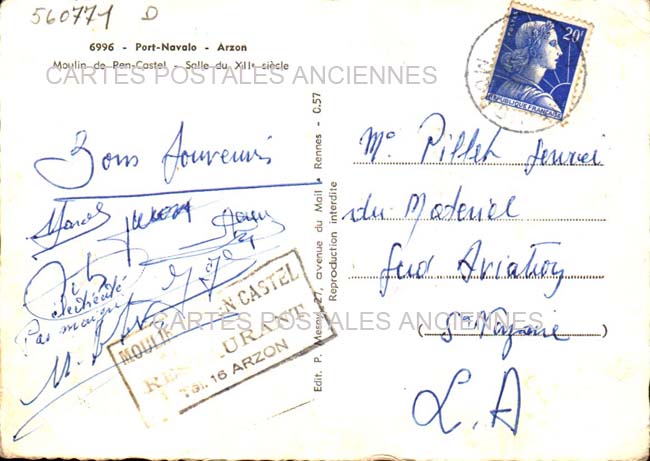 560771 D
6996 - Port-Navalo - Arzon
Moulin de Pen-Castel - Salle du XIIIe siècle
CARTES POSTALES ANCIENNES
POSTES
20F
REPUBLIQUE FRANÇAISE
Bons Souvenirs
électricité
Pas
MOULIN PEN CASTEL
RESTAURANT
Tél. 16 ARZON
Edit. P. 27, avenue du Mail - Rennes - 0.57
Reproduction interdite
Mr Pillet
du Materiel
Sud Aviation
(St Nazaire)
L. A
CARTES POSTALES ANCIENNES